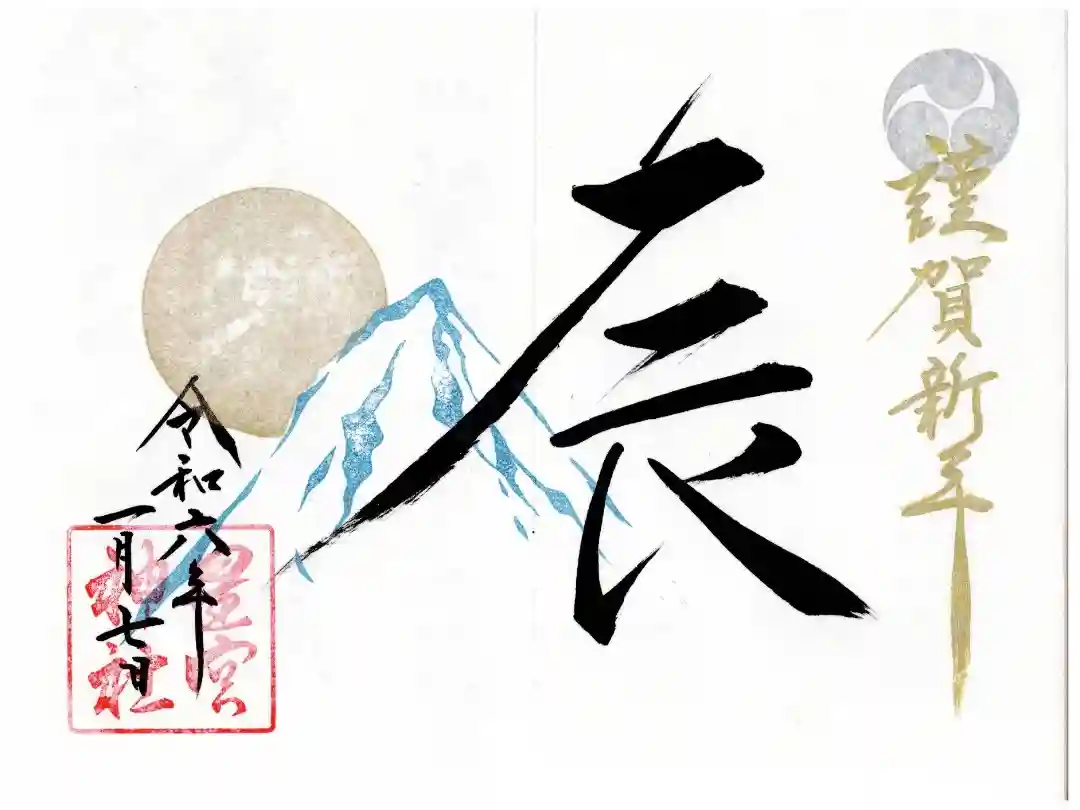 謹賀新年
辰
令和六年
一月七日
星宮
神社